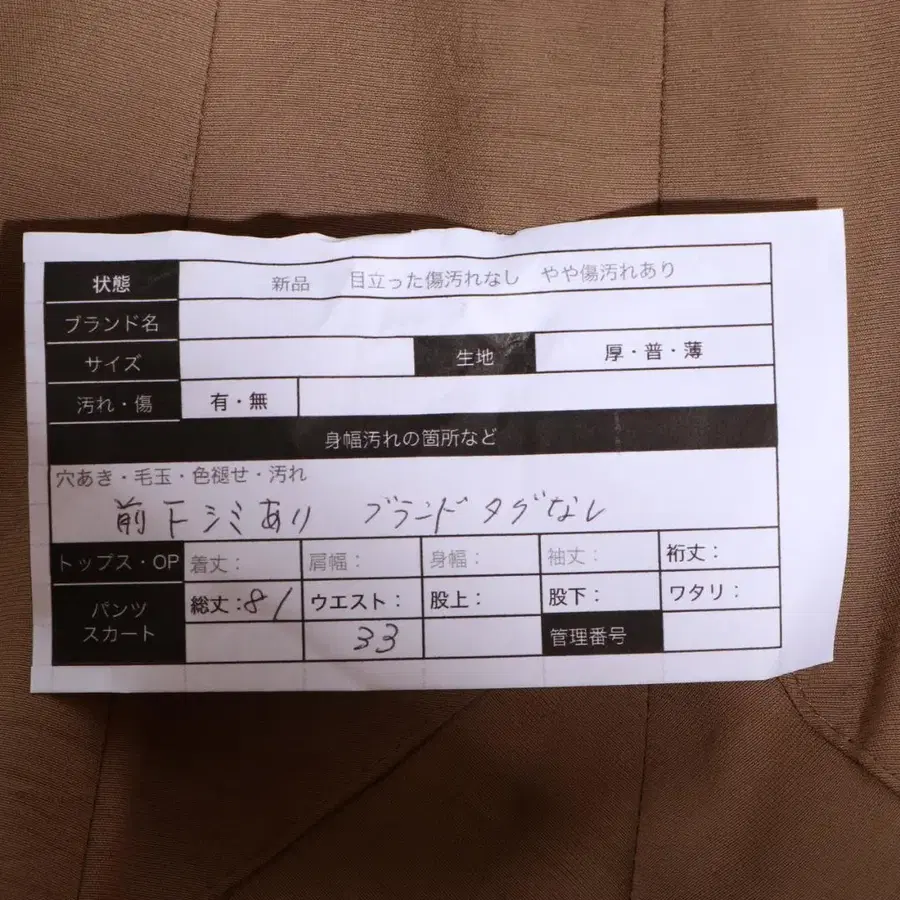 状態 新品 目立った傷汚れなし やや傷汚れあり
ブランド名
サイズ 生地 厚・普・薄
汚れ・傷 有・無
身幅汚れの箇所など
穴あき・毛玉・色褪せ・汚れ
前下シミあり ブランドタグなし
トップス・OP 着丈: 肩幅: 身幅: 袖丈: 裄丈:
パンツ スカート 総丈:81 ウエスト: 股上: 股下: ワタリ:
33 管理番号